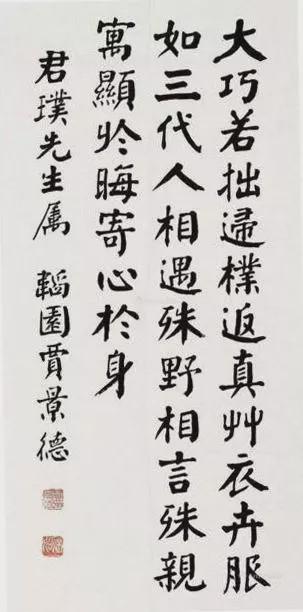 大巧若拙歸樸返真艸衣卉服
如三代人相遇殊野相言殊親
寓顯於晦寄心於身
君璞先生属 韜園賈景德